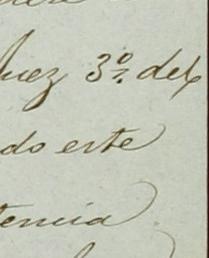 Juez 3º. del
do este
tencia